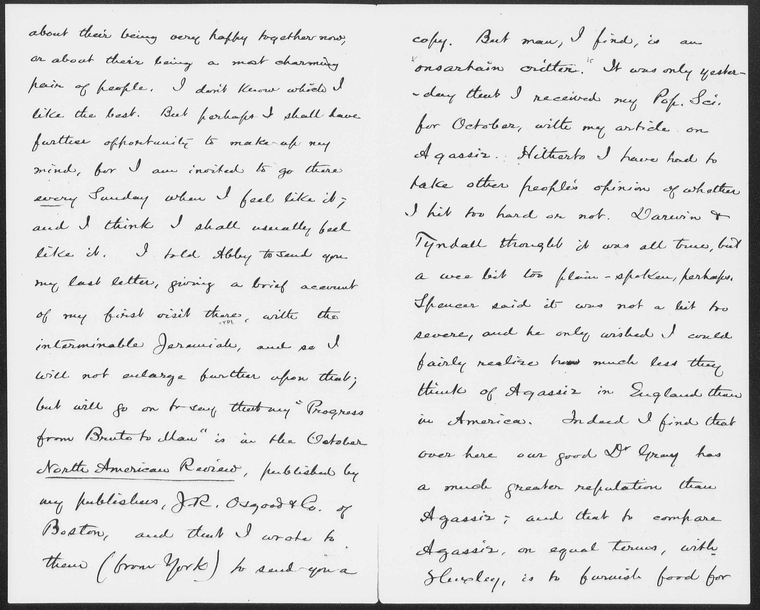 about their being very happy together now,
or about their being a most charming
pair of people. I don't know which I
like the best. But perhaps I shall have
further opportunity to make up my
mind, for I am invited to go there
every Sunday when I feel like it;
and I think I shall usually feel
like it. I told Abby to send you
my last letter, giving a brief account
of my first visit there, with the
interminable Jeremiah, and so I
will not enlarge further upon that;
but will go on to say that my "Progress
from Brute to Man" is in the October
North American Review, published by
my publishers, J.R. Osgood & Co. of
Boston, and that I wrote to
them (from York) to send you a
copy. But man, I find, is an
"onsartain critter." It was only yester-
-day that I received my Pop. Sci.
for October, with my article on
Agassiz. Hitherto I have had to
take other people's opinion of whether
I hit too hard or not. Darwin &
Tyndall thought it was all true, but
a wee bit too plain-spoken, perhaps.
Spencer said it was not a bit too
severe, and he only wished I could
fairly realize how much less they
think of Agassiz in England than
in America. Indeed I find that
over here our good Dr Gray has
a much greater reputation than
Agassiz; and that to compare
Agassiz, on equal terms, with
Huxley, is to furnish food for